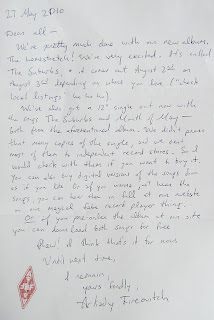 27 May 2010
Dear all —
We're pretty much done with our new album.
The homestretch! We're very excited. It's called
The Suburbs, + it comes out August 2nd or
August 3rd depending on where you live ("check
local listings," he he he)
We've also got a 12" single out now with
the songs The Suburbs and Month of May —
both from the aforementioned album. We didn't press
that many copies of the single, but we sent
most of them to independent record stores. So I
would check with them if you want to buy it.
You can also buy digital versions of the songs from
us if you like. Or if you wanna just hear the
songs, you can hear them in full at our website
on our magical fake record player thing.
Or if you pre-order the album at our site
you can download both songs for free
Phew! I think that's it for now.
Until next time,
I remain,
yours fondly,